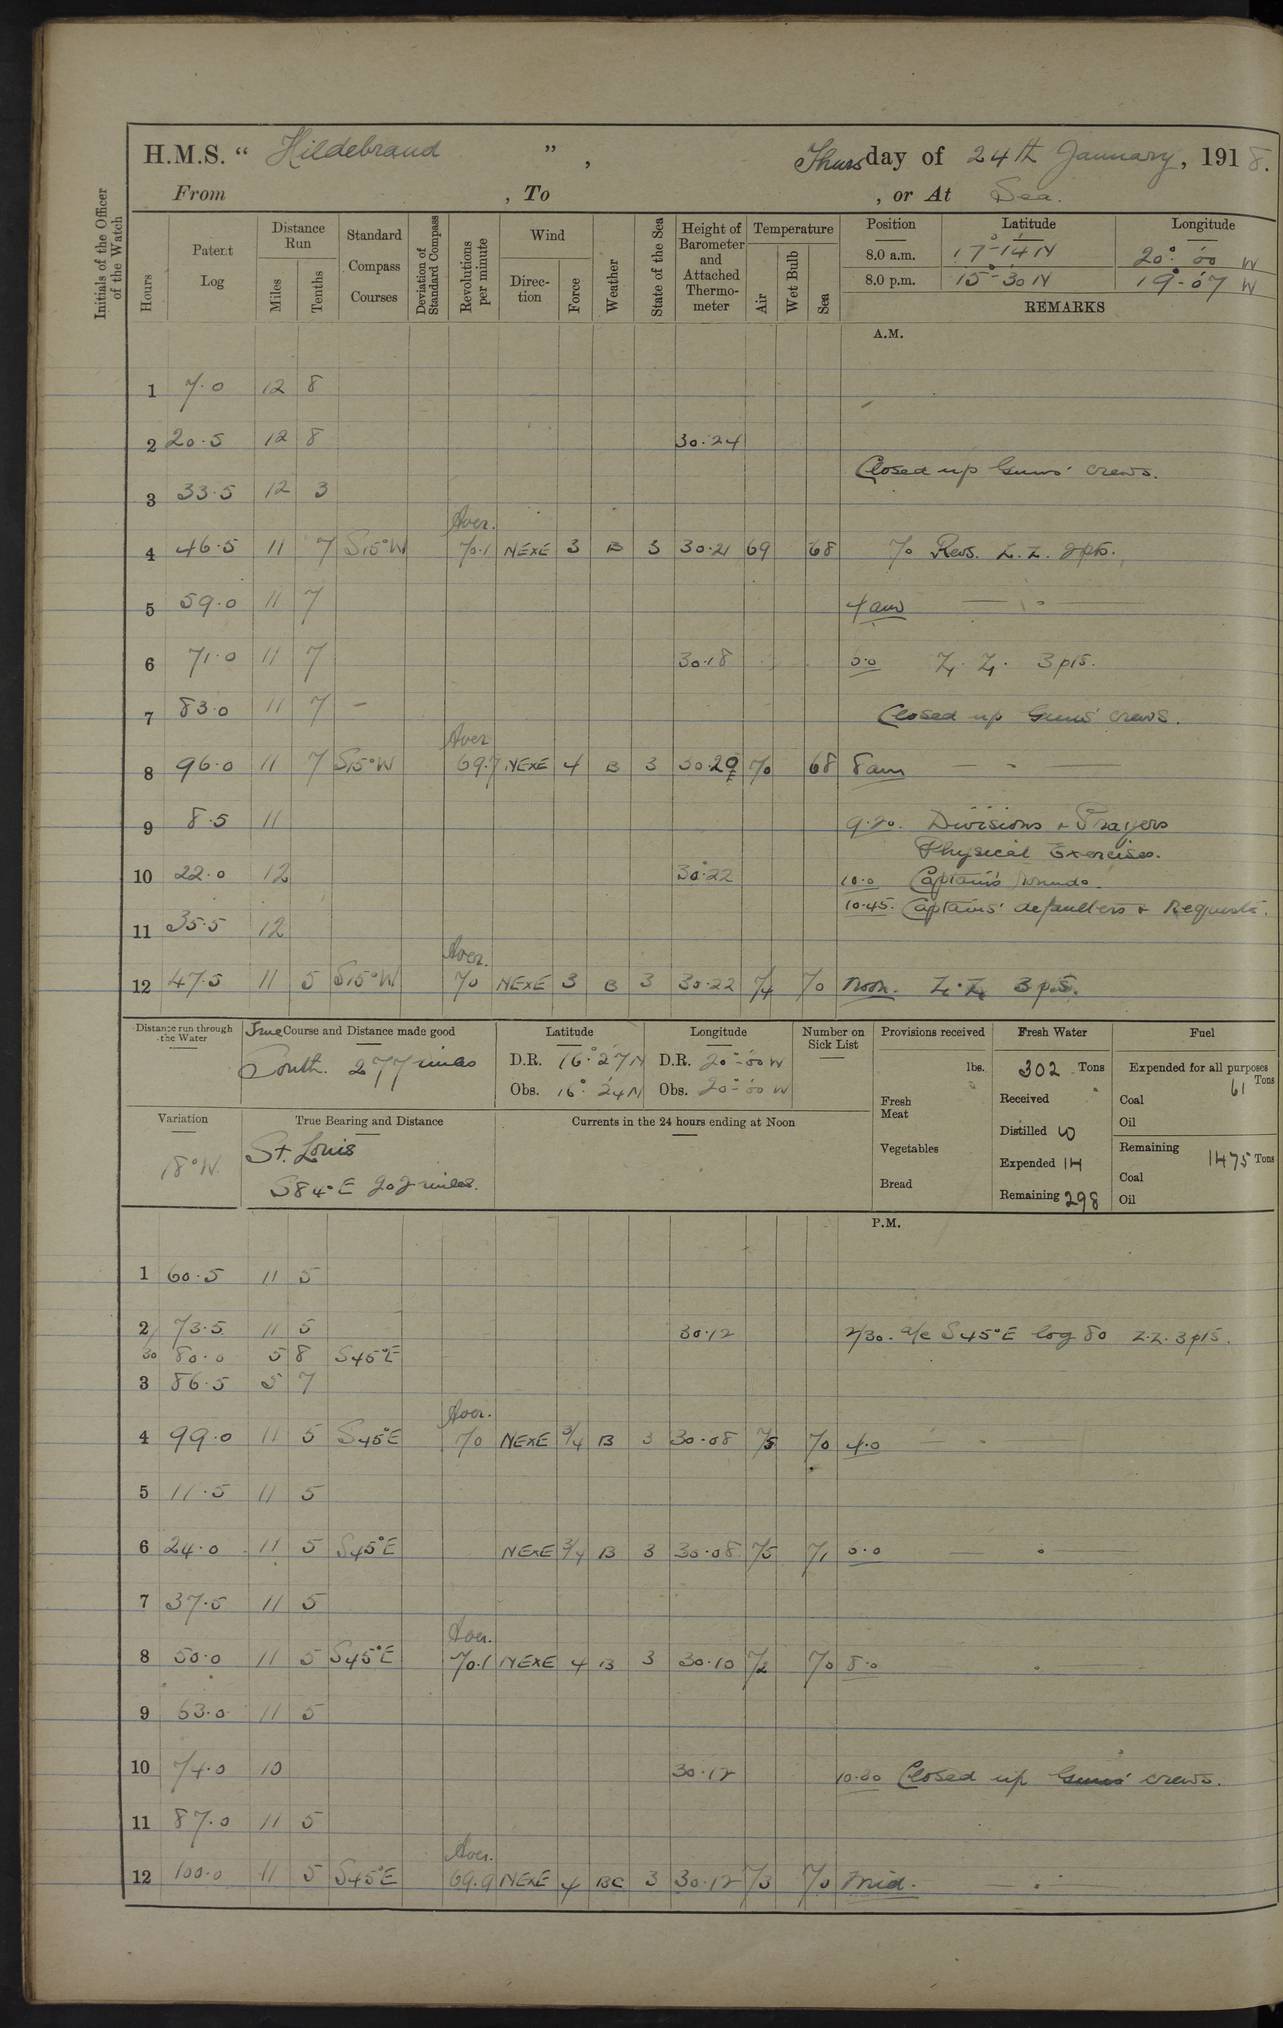 H.M.S. “ Hildebrand ”, Thursday of 24th January, 1918.
From , To , or At Sea.
Initials of the Officer of the Watch
Hours
Patent Log
Distance Run
Miles
Tenths
Standard Compass Courses
Deviation of Standard Compass
Revolutions per minute
Wind
Direction
Force
Weather
State of the Sea
Height of Barometer and Attached Thermometer
Temperature
Air
Wet Bulb
Sea
Position Latitude Longitude
8.0 a.m. 17°-14 N 20°-00 W
8.0 p.m. 15°-30 N 19°-07 W
REMARKS
A.M.
1 7.0 12 8
2 20.5 12 8 30.24
Closed up Guns' crews.
3 33.5 12 3
Aver.
4 46.5 11 7 S15°W 70.1 NExE 3 B 3 30.21 69 68 70 Revs. Z.Z. 2pts.
5 59.0 11 7 4am — " —
6 71.0 11 7 30.18 6.0 Z.Z. 3pts.
7 83.0 11 7 – Closed up Guns' crews.
Aver
8 96.0 11 7 S15°W 69.7 NExE 4 B 3 30.20 70 68 8am — " —
9 8.5 11 9.20. Divisions & Prayers
Physical Exercises.
10 22.0 12 30.22 10.0 Captain's Rounds.
10.45. Captains' defaulters & Requests.
11 35.5 12
Aver.
12 47.5 11 5 S15°W 70 NExE 3 B 3 30.22 74 70 Noon. Z.Z. 3pts.
Distance run through the Water
True Course and Distance made good
South. 277 miles
Latitude
D.R. 16°-27 N
Obs. 16°-24 N
Longitude
D.R. 20°-00 W
Obs. 20°-00 W
Number on Sick List
Provisions received
lbs.
Fresh Meat
Vegetables
Bread
Fresh Water
302 Tons
Received
Distilled 10
Expended 14
Remaining 298
Fuel
Expended for all purposes
61 Tons
Coal
Oil
Remaining 1475 Tons
Coal
Oil
Variation
18°W.
True Bearing and Distance
St. Louis
S84°E 202 miles.
Currents in the 24 hours ending at Noon
P.M.
1 60.5 11 5
2 73.5 11 5 30.12 2/30. a/c S45°E log 80 Z.Z. 3pts.
30 80.0 5 8 S45°E
3 86.5 5 7
Aver.
4 99.0 11 5 S45°E 70 NExE 3/4 B 3 30.08 75 70 4.0 — " —
5 11.5 11 5
6 24.0 11 5 S45°E NExE 3/4 B 3 30.08 75 71 6.0 — " —
7 37.5 11 5
Aver.
8 50.0 11 5 S45°E 70.1 NExE 4 B 3 30.10 72 70 8.0 — " —
9 63.0 11 5
10 74.0 10 30.12 10.30 Closed up Guns' crews.
11 87.0 11 5
Aver.
12 100.0 11 5 S45°E 69.9 NExE 4 BC 3 30.12 73 70 Mid. — " —